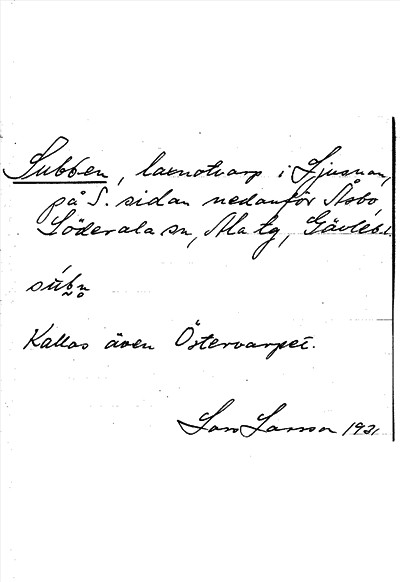 Subben, laxnotvarp i Ljusnan,
på S. sidan nedanför Åsbo,
Söderala sn, Ala tg, Gävleb. l.
Kallas även Östervarpet.
Lars Larsson 1931